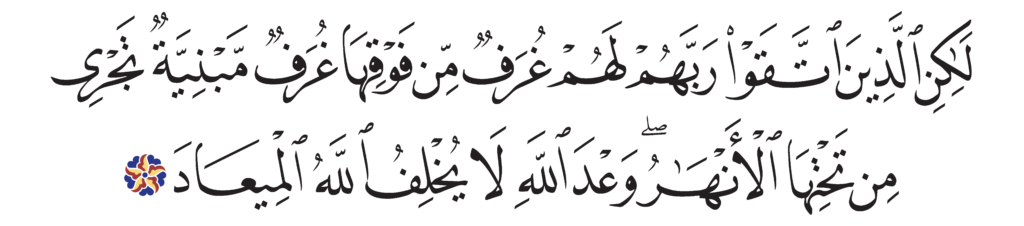 لَٰكِنِ ٱلَّذِينَ ٱتَّقَوْا۟ رَبَّهُمْ لَهُمْ غُرَفٌ مِّن فَوْقِهَا غُرَفٌ مَّبْنِيَّةٌ تَجْرِى
مِن تَحْتِهَا ٱلْأَنْهَٰرُ ۖ وَعْدَ ٱللَّهِ لَا يُخْلِفُ ٱللَّهُ ٱلْمِيعَادَ